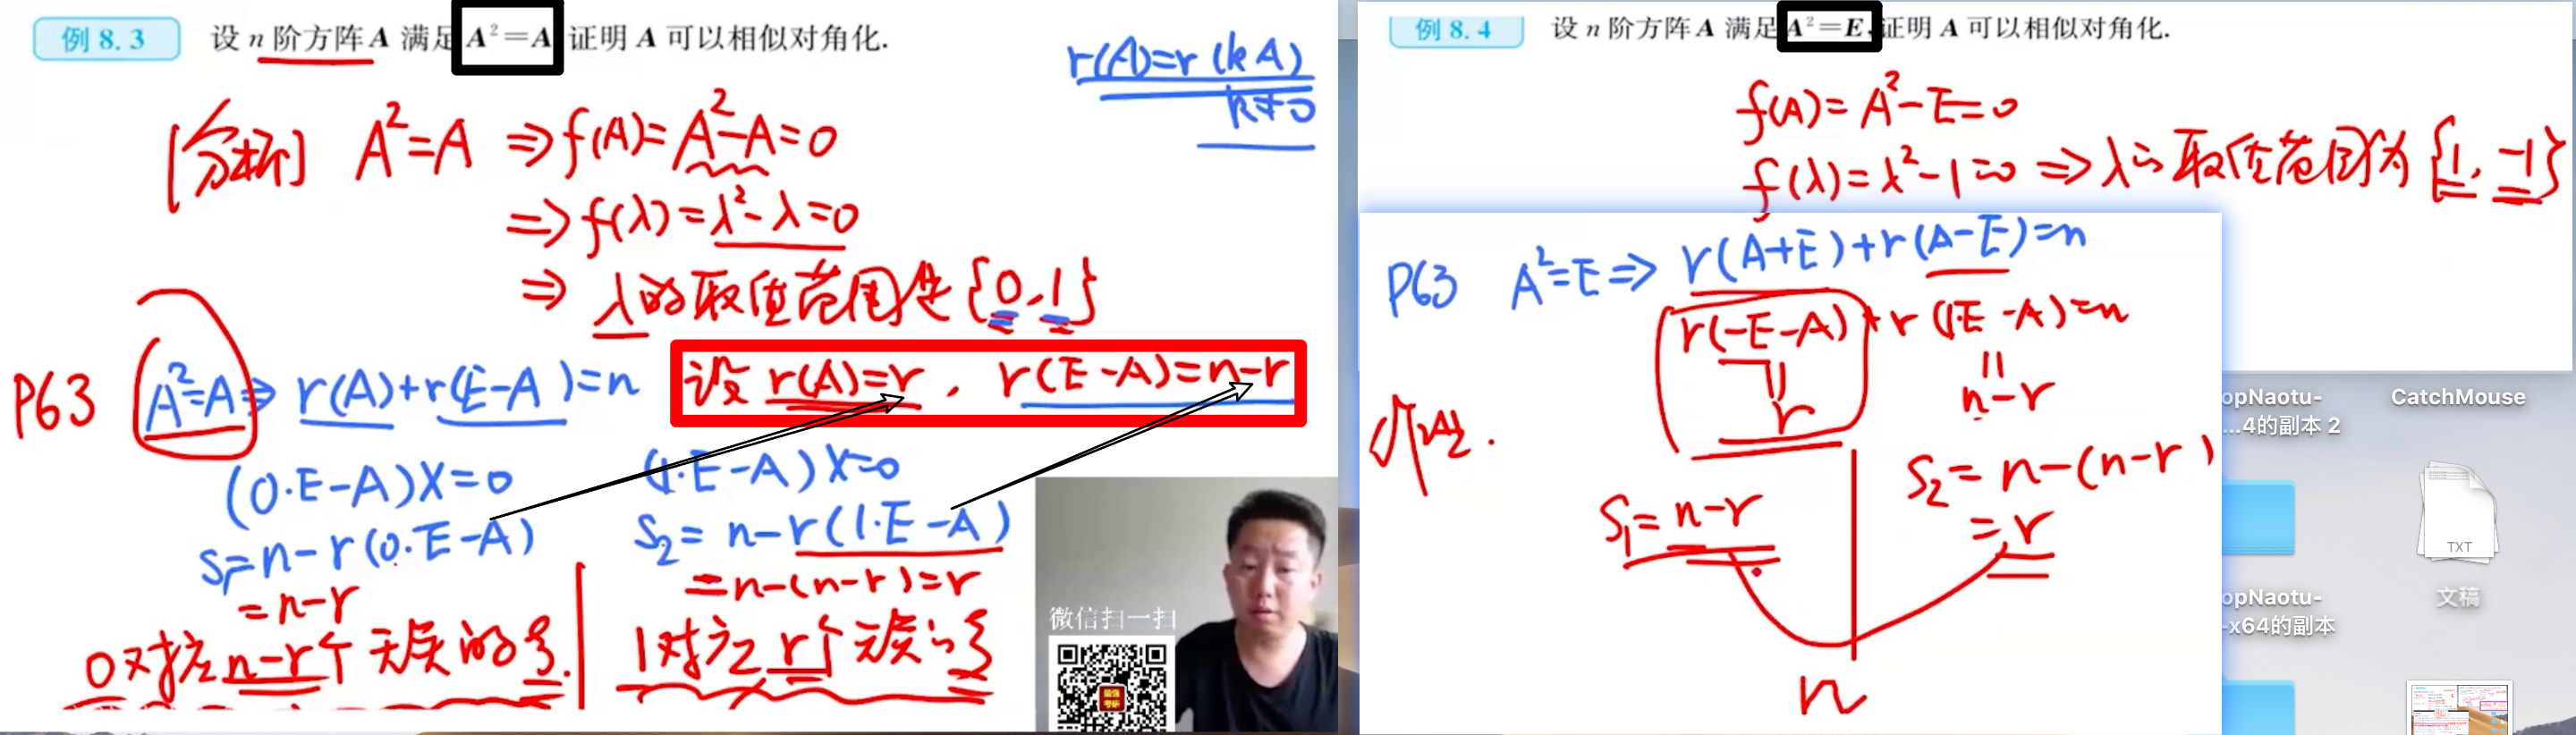 例 8.3 设 n 阶方阵 A 满足 A²=A 证明 A 可以相似对角化.
r(A)=r(kA)
k≠0
[分析] A²=A ⇒ f(A)=A²-A=0
⇒ f(λ)=λ²-λ=0
⇒ λ的取值范围是{0,1}
P63 A²=A ⇒ r(A)+r(E-A)=n 设 r(A)=r, r(E-A)=n-r
(0·E-A)X=0
S₁=n-r(0·E-A)
=n-r
0对应n-r个无关的ξ.
(1·E-A)X=0
S₂=n-r(1·E-A)
=n-(n-r)=r
1对应r个无关的ξ
微信扫一扫
例 8.4 设 n 阶方阵 A 满足 A²=E, 证明 A 可以相似对角化.
f(A)=A²-E=0
f(λ)=λ²-1=0 ⇒ λ的取值范围为{1,-1}
P63 A²=E ⇒ r(A+E)+r(A-E)=n
r(-E-A)+r(1·E-A)=n
r
n-r
S₁=n-r
S₂=n-(n-r)
=r
n
opNaotu-
...4的副本 2
CatchMouse
TXT
文稿
opNaotu-
-x64的副本